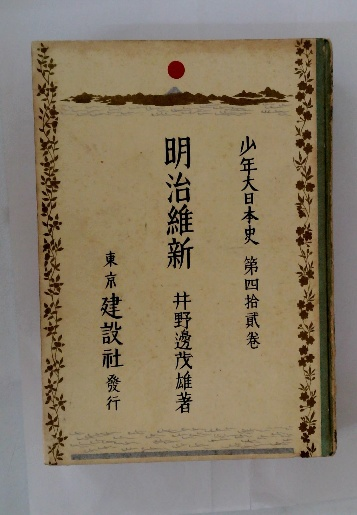 少年大日本史 第四拾貳巻
明治維新 井野邊茂雄著
東京 建設社 發行